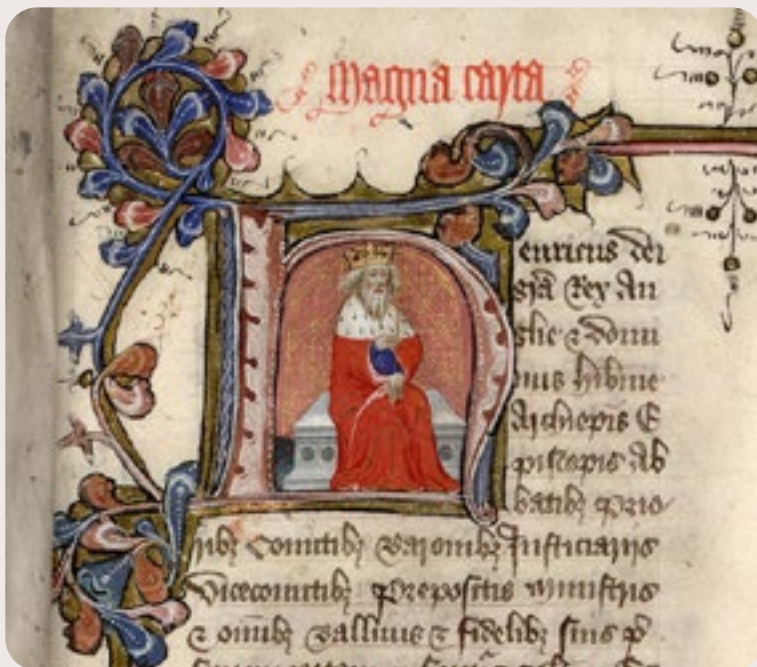 Magna carta
Henricus dei
gra Rex An
glie & Domi
nus hibnie
Archiepis E
piscopis Ab
batib; Prio
rib; Comitib; Baronib; Justiciariis
Vicecomitib; Prepositis Ministris
& omib; Ballivis & fidelib; suis